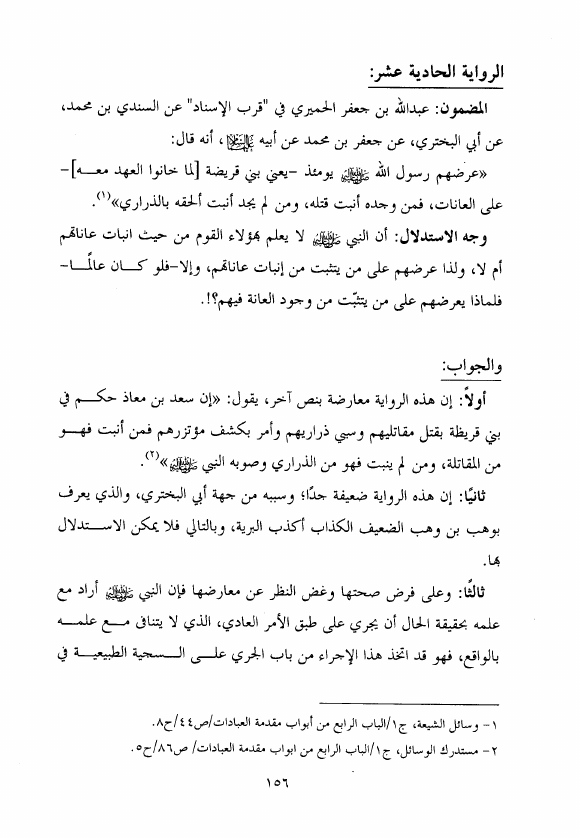 الرواية الحادية عشر:
المضمون: عبدالله بن جعفر الحميري في "قرب الإسناد" عن السندي بن محمد،
عن أبي البختري، عن جعفر بن محمد عن أبيه عليهما السلام، أنه قال:
«عرضهم رسول الله ﷺ يومئذ -يعني بني قريضة [لما خانوا العهد معـــه]-
على العانات، فمن وجده أنبت قتله، ومن لم يجد أنبت ألحقه بالذراري»(١).
وجه الاستدلال: أن النبي ﷺ لا يعلم بهؤلاء القوم من حيث انبات عاناتهم
أم لا، ولذا عرضهم على من يتثبت من إنبات عاناتهم، وإلا-فلو كـــان عالمـًــا-
فلماذا يعرضهم على من يتثبّت من وجود العانة فيهم؟!.
والجواب:
أولاً: إن هذه الرواية معارضة بنص آخر، يقول: «إن سعد بن معاذ حكـــم في
بني قريظة بقتل مقاتليهم وسبي ذراريهم وأمر بكشف مؤتزرهم فمن أنبت فهـــو
من المقاتلة، ومن لم ينبت فهو من الذراري وصوبه النبي ﷺ»(٢).
ثانيًا: إن هذه الرواية ضعيفة جدًا؛ وسببه من جهة أبي البختري، والذي يعرف
بوهب بن وهب الضعيف الكذاب أكذب البرية، وبالتالي فلا يمكن الاســـتدلال
بها.
ثالثًا: وعلى فرض صحتها وغض النظر عن معارضها فإن النبي ﷺ أراد مع
علمه بحقيقة الحال أن يجري على طبق الأمر العادي، الذي لا يتنافى مـــع علمـــه
بالواقع، فهو قد اتخذ هذا الإجراء من باب الجري علـــى الـــسجية الطبيعيـــة في
١- وسائل الشيعة، ج١/الباب الرابع من أبواب مقدمة العبادات/ص٤٤/ح٨.
٢- مستدرك الوسائل، ج١/الباب الرابع من ابواب مقدمة العبادات/ ص٨٦/ح٥.
١٥٦